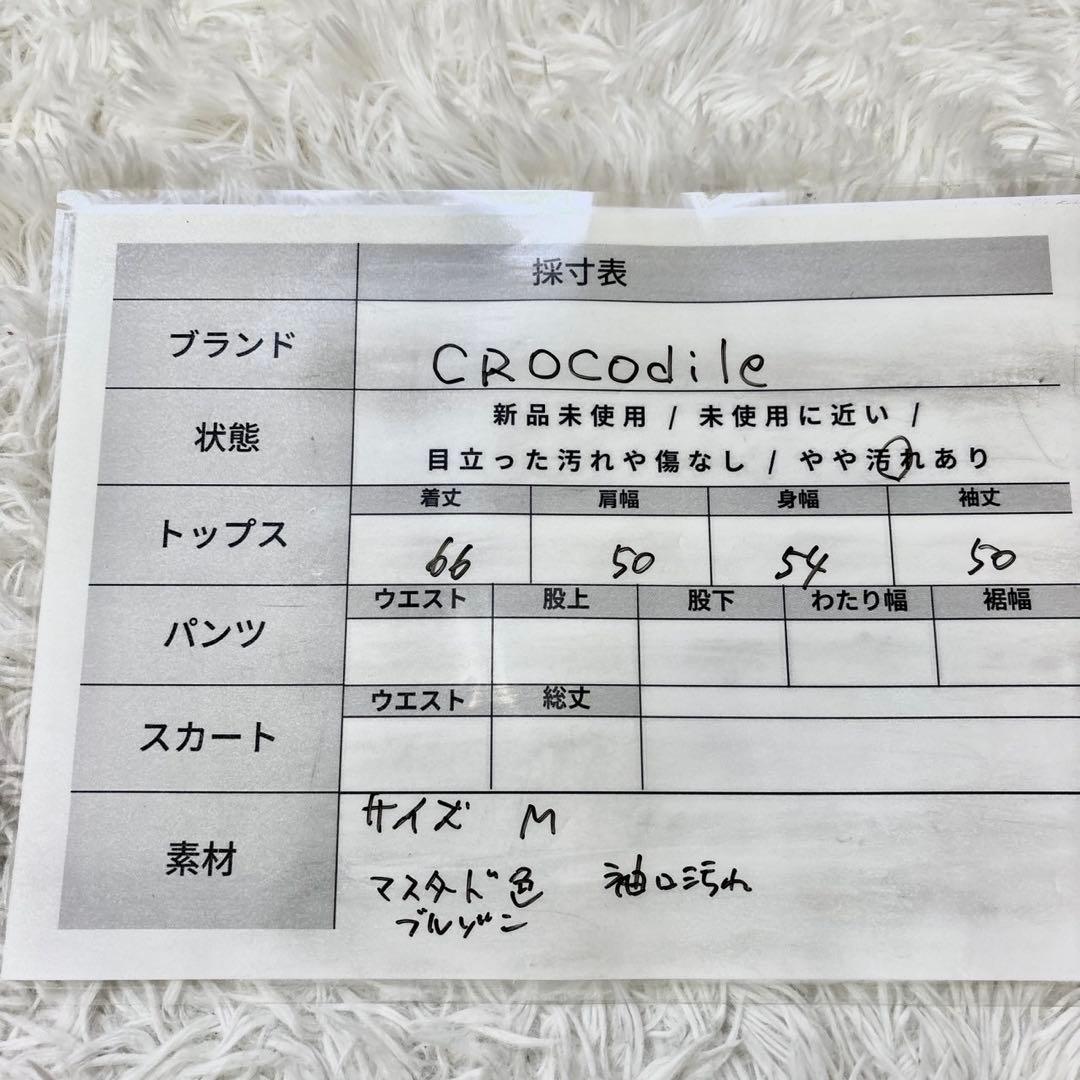 採寸表
ブランド CROCOdile
状態 新品未使用 / 未使用に近い /
目立った汚れや傷なし / やや汚れあり
トップス 着丈 肩幅 身幅 袖丈
66 50 54 50
パンツ ウエスト 股上 股下 わたり幅 裾幅
スカート ウエスト 総丈
素材 サイズ M
マスタード色 袖口汚れ
ブルゾン